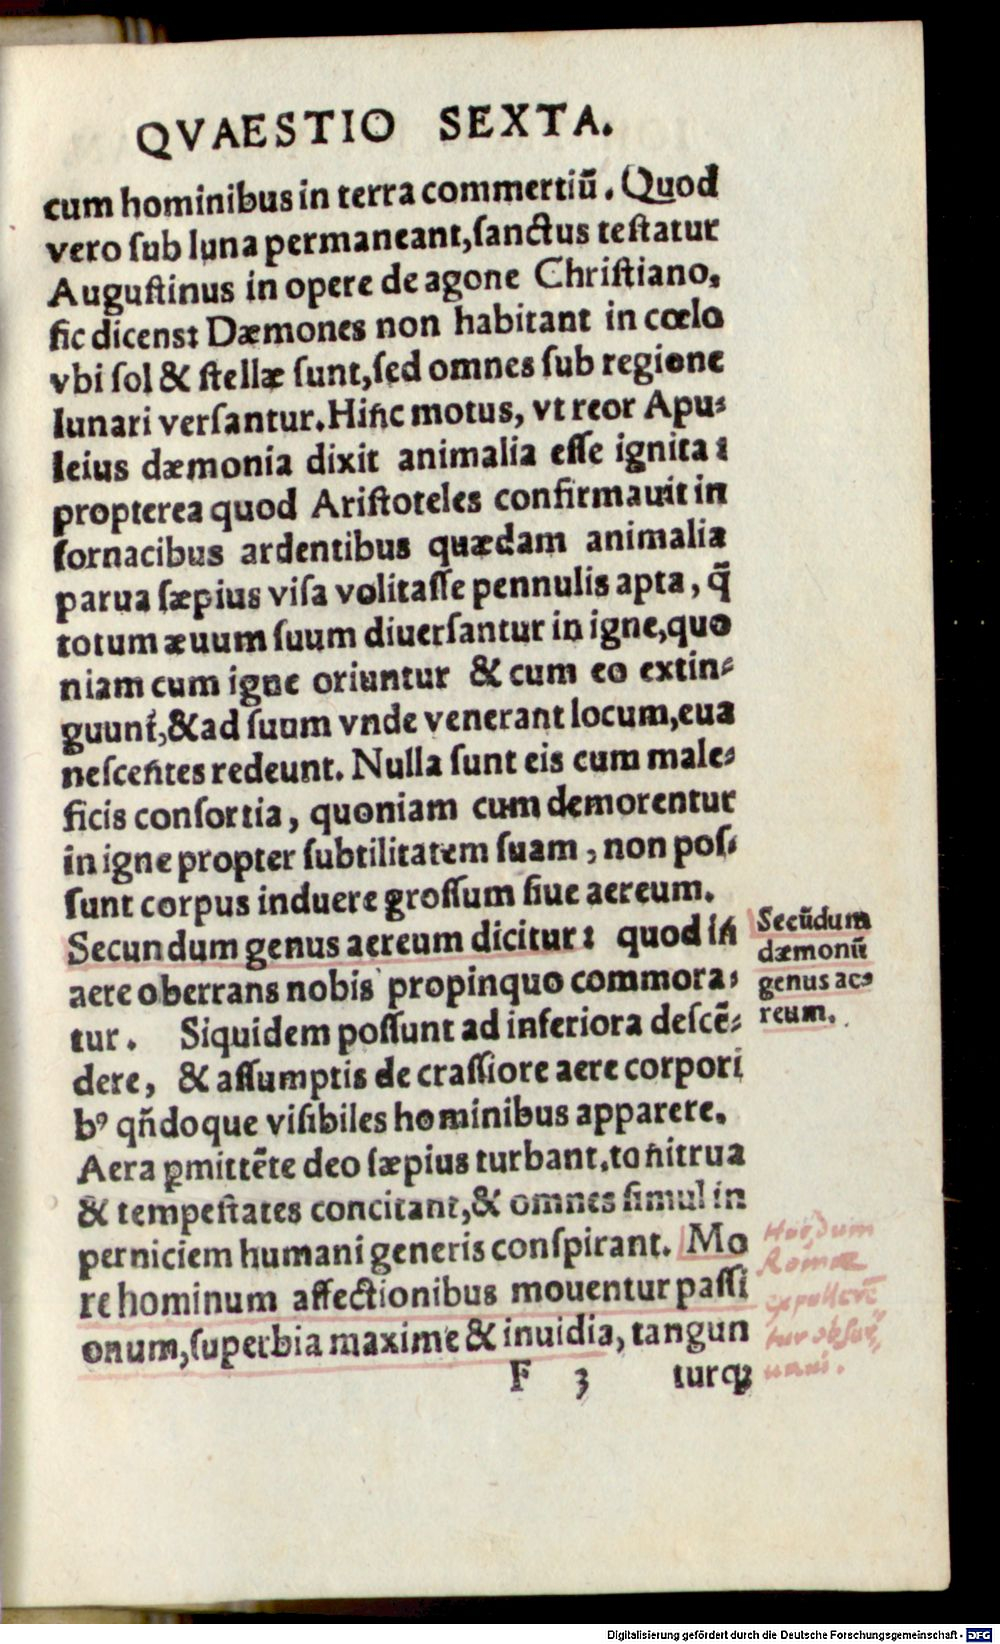 QVAESTIO SEXTA.
cum hominibus in terra commertiū. Quod
vero ſub luna permaneant, ſanctus teſtatur
Auguſtinus in opere de agone Chriſtiano,
ſic dicens: Dæmones non habitant in cœlo
vbi ſol & ſtellæ ſunt, ſed omnes ſub regione
lunari verſantur. Hinc motus, vt reor Apu⸗
leius dæmonia dixit animalia eſſe ignita:
propterea quod Ariſtoteles confirmauit in
fornacibus ardentibus quædam animalia
parua ſæpius viſa volitaſſe pennulis apta, q̄
totum æuum ſuum diuerſantur in igne, quo
niam cum igne oriuntur & cum eo extin⸗
guunt, & ad ſuum vnde venerant locum, eua
neſcentes redeunt. Nulla ſunt eis cum male⸗
ficis conſortia, quoniam cum demorentur
in igne propter ſubtilitatem ſuam, non poſ⸗
ſunt corpus induere groſſum ſiue aereum.
Secundum genus aereum dicitur: quod in
aere oberrans nobis propinquo commora⸗
tur. Siquidem poſſunt ad inferiora deſcē⸗
dere, & aſſumptis de craſſiore aere corpori
bꝰ qn̄doque viſibiles hominibus apparere.
Aera ꝑmittēte deo ſæpius turbant, tonitrua
& tempeſtates concitant, & omnes ſimul in
perniciem humani generis conſpirant. Mo
re hominum affectionibus mouentur paſſi
onum, ſuperbia maxime & inuidia, tangun
F 3 turqꝫ
Secūdum
dæmoniū
genus ae⸗
reum.
Digitalisierung gefördert durch die Deutsche Forschungsgemeinschaft - DFG